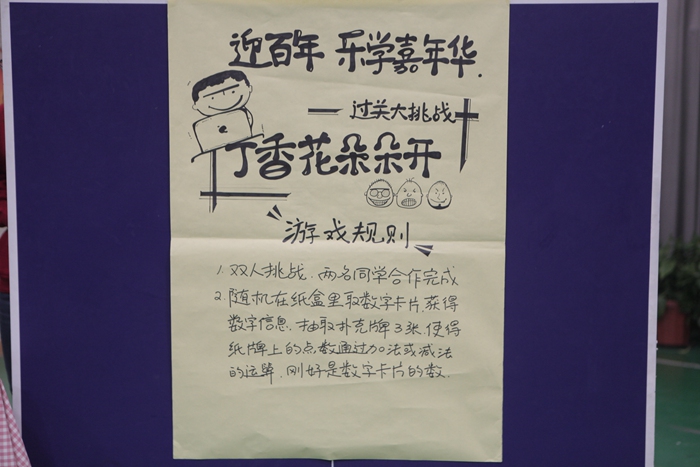 迎百年 乐学嘉年华.
一 过关大挑战
丁香花朵朵开
游戏规则
1. 双人挑战. 两名同学合作完成
2. 随机在纸盒里取数字卡片. 获得
数字信息. 抽取扑克牌3张. 使得
纸牌上的点数通过加法或减法
的运算. 刚好是数字卡片的数.